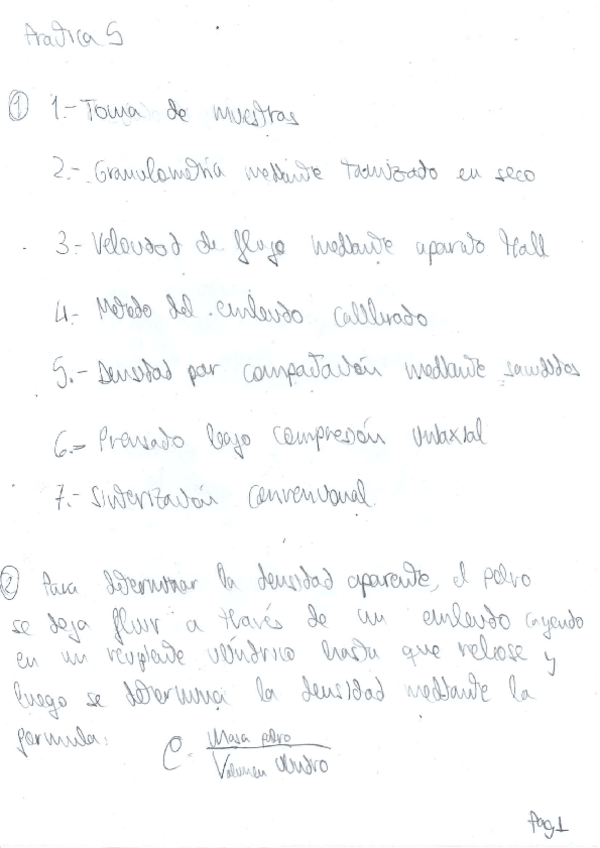 Practica 5
① 1.- Toma de muestras
2.- Granulometría mediante tamizado en seco
3.- Velocidad de flujo mediante aparato Hall
4.- Metodo del embudo calibrado
5.- Densidad por compactación mediante sacudidas
6.- Prensado bajo compresión uniaxial
7.- Sinterización convencional
② Para determinar la densidad aparente, el polvo
se deja fluir a través de un embudo cayendo
en un recipiente cilíndrico hasta que rebose y
luego se determina la densidad mediante la
formula: ρ = Masa polvo / Volumen cilindro
Pag 1